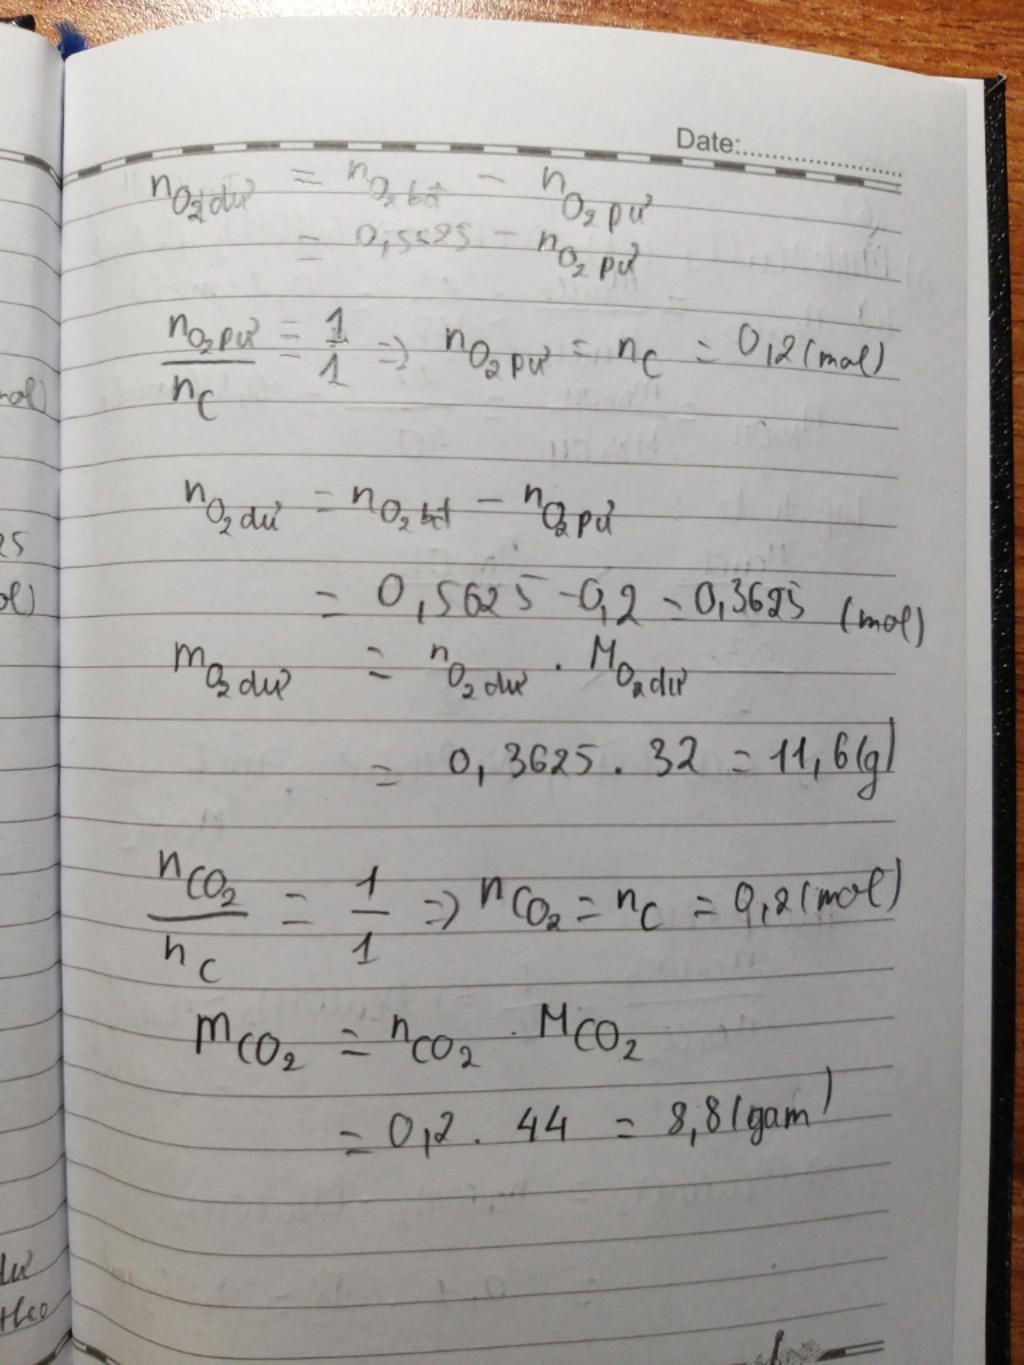 Date:
n O₂ dư = n O₂ bđ − n O₂ pư
= 0,5625 − n O₂ pư
n O₂ pư / n C = 1/1 => n O₂ pư = n C = 0,2 (mol)
n O₂ dư = n O₂ bđ − n O₂ pư
= 0,5625 - 0,2 = 0,3625 (mol)
m O₂ dư = n O₂ dư . M O₂ dư
= 0,3625 . 32 = 11,6 (g)
n CO₂ / n C = 1/1 => n CO₂ = n C = 0,2 (mol)
m CO₂ = n CO₂ . M CO₂
= 0,2 . 44 = 8,8 (gam)